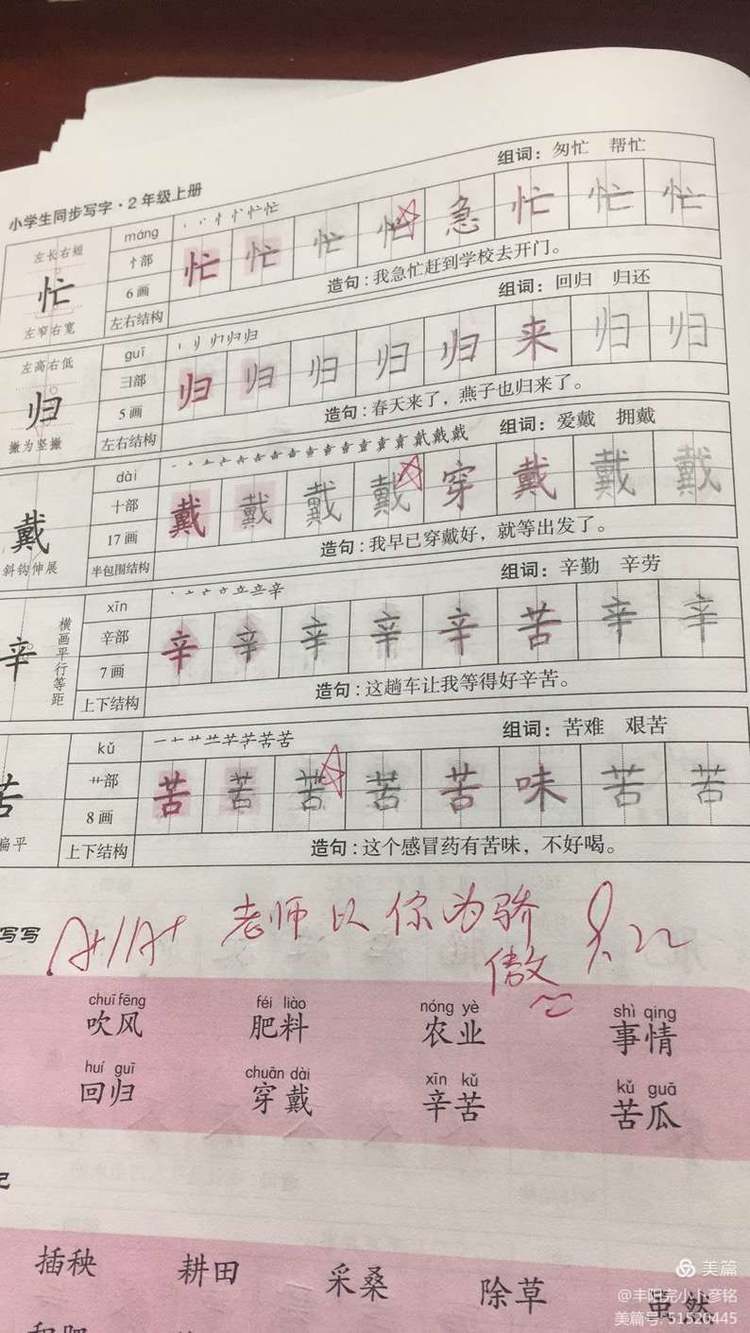 小学生同步写字·2年级上册
组词：匆忙 帮忙
左长右短
忙
左窄右宽
máng
忄部
6画
左右结构
忙 忙 忙 忙 急 忙 忙 忙
造句：我急忙赶到学校去开门。
组词：回归 归还
左高右低
归
撇为竖撇
guī
彐部
5画
左右结构
归 归 归 归 归 来 归 归
造句：春天来了，燕子也归来了。
组词：爱戴 拥戴
戴
斜钩伸展
dài
十部
17画
半包围结构
戴 戴 戴 戴 穿 戴 戴 戴
造句：我早已穿戴好，就等出发了。
组词：辛勤 辛劳
辛
横画平行等距
xīn
辛部
7画
上下结构
辛 辛 辛 辛 辛 苦 辛 辛
造句：这趟车让我等得好辛苦。
组词：苦难 艰苦
苦
扁平
kǔ
艹部
8画
上下结构
苦 苦 苦 苦 苦 味 苦 苦
造句：这个感冒药有苦味，不好喝。
写写
A+/A+ 老师以你为骄
傲
chuī fēng féi liào nóng yè shì qing
吹风 肥料 农业 事情
huí guī chuān dài xīn kǔ kǔ guā
回归 穿戴 辛苦 苦瓜
记
插秧 耕田 采桑 除草 虽然
美篇
@丰阳完小卜彦铭
美篇号: 51520445